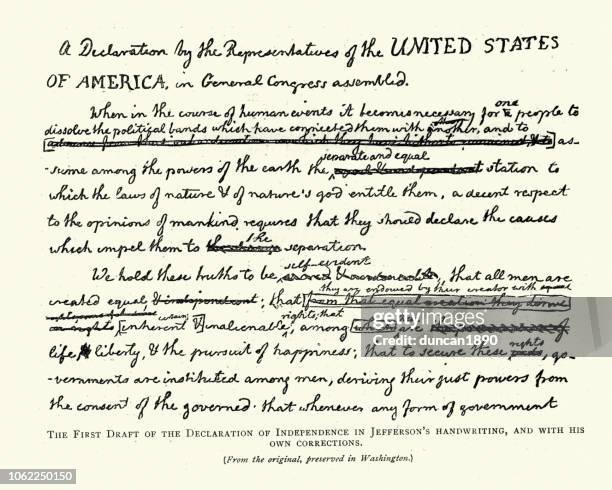 A Declaration by the Representatives of the UNITED STATES
OF AMERICA, in General Congress assembled.
When in the course of human events it becomes necessary for one people to
dissolve the political bands which have connected them with another, and to
as-
separate and equal
sume among the powers of the earth the station to
which the laws of nature & of nature's god entitle them, a decent respect
to the opinions of mankind requires that they should declare the causes
the
which impel them to separation.
self-evident
We hold these truths to be sacred & undeniable, that all men are
they are endowed by their creator with
created equal & independent; that from that equal creation they derive
rights; that
inherent & inalienable, among are
life, liberty, & the pursuit of happiness; that to secure these rights, go-
vernments are instituted among men, deriving their just powers from
the consent of the governed. that whenever any form of government
THE FIRST DRAFT OF THE DECLARATION OF INDEPENDENCE IN JEFFERSON'S HANDWRITING, AND WITH HIS
OWN CORRECTIONS.
(From the original, preserved in Washington.)
gettyimages
duncan1890
1062250150